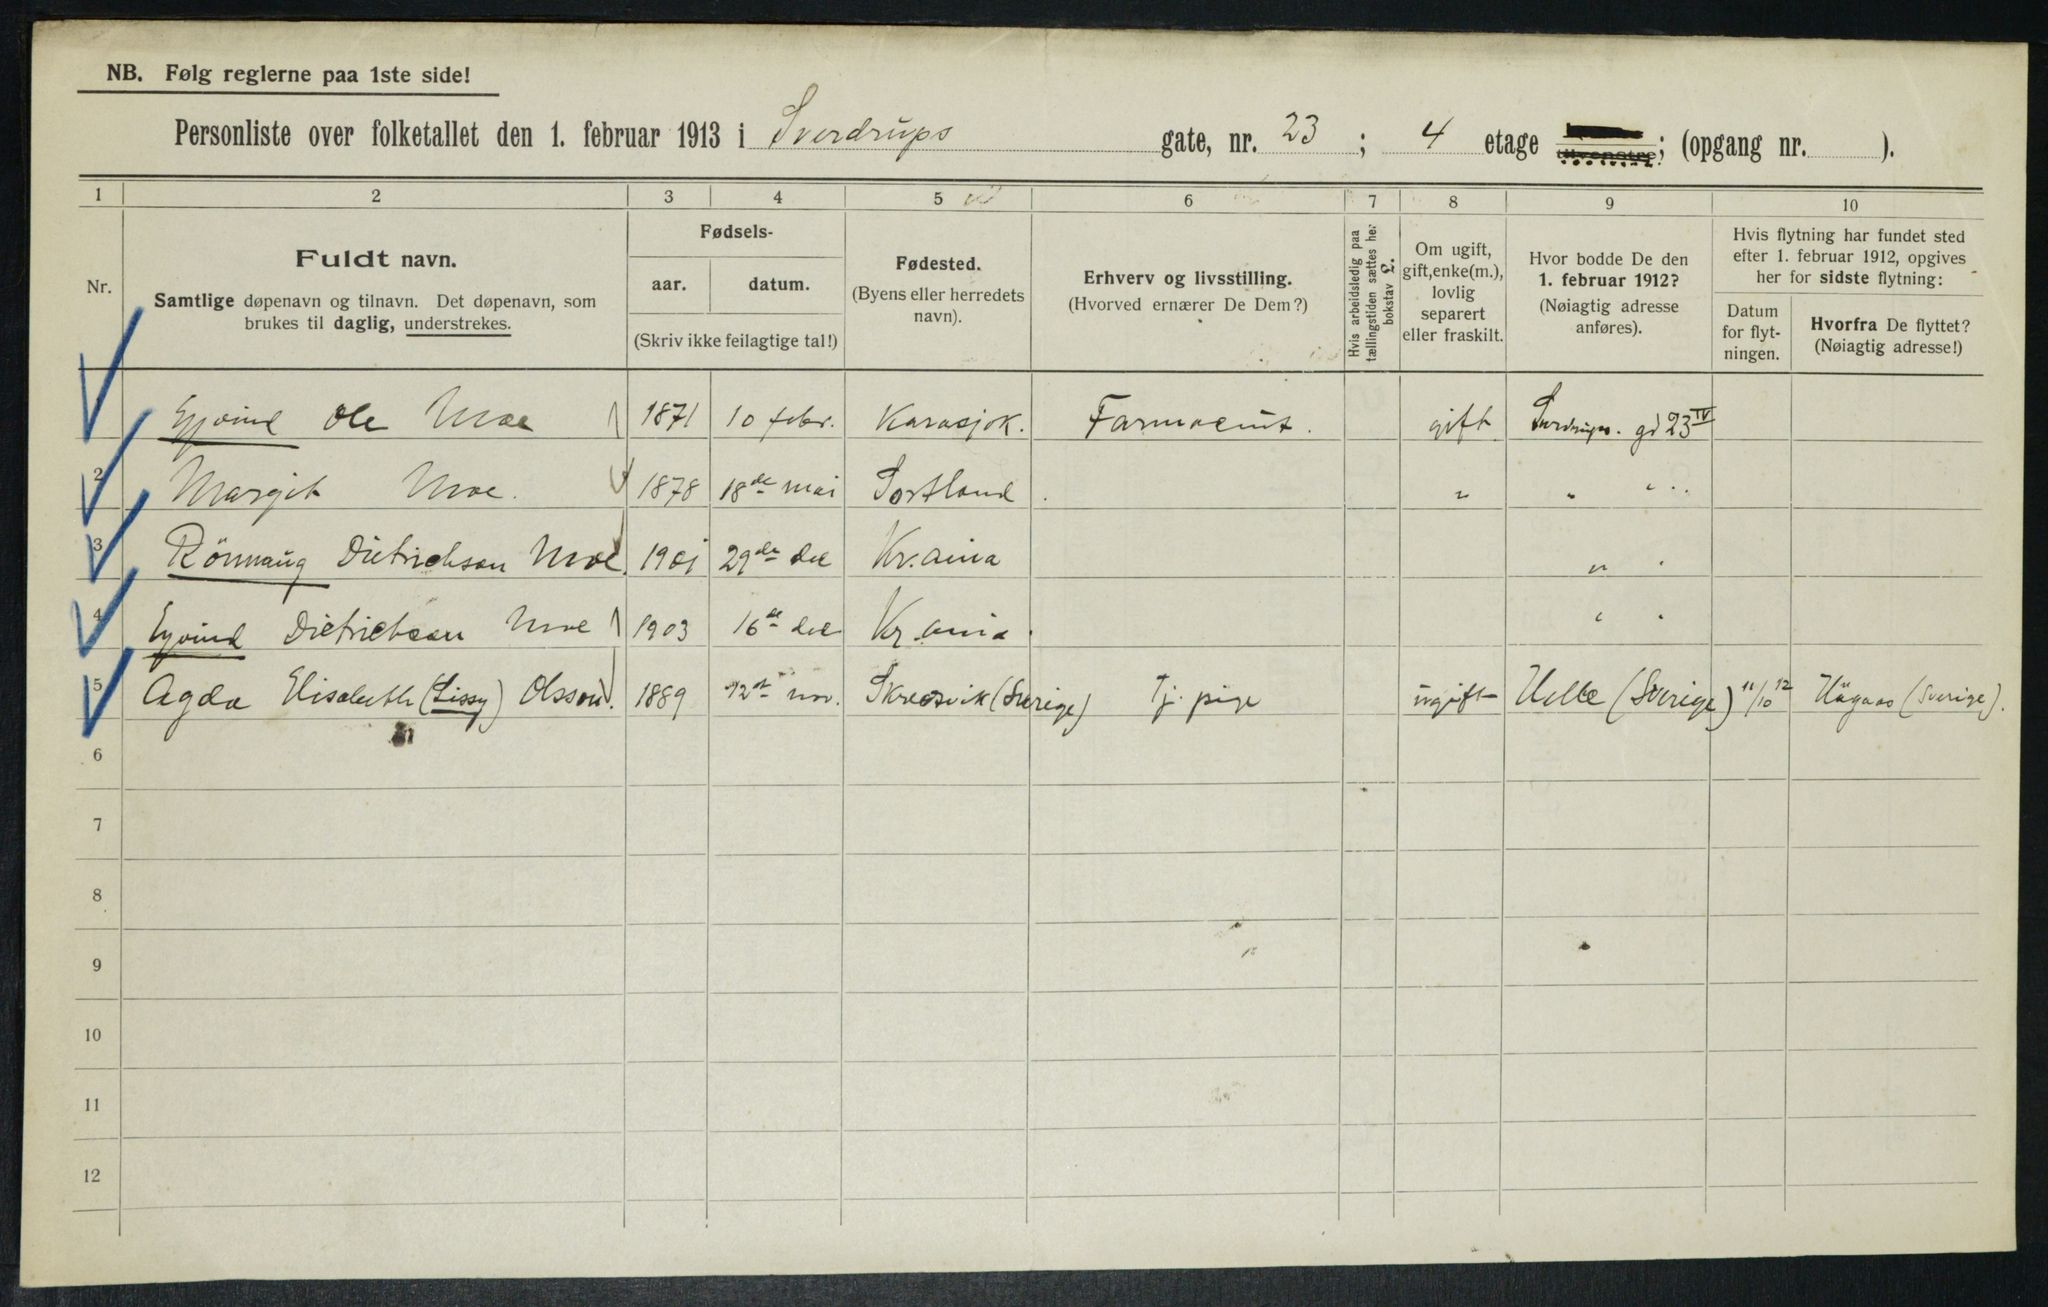 NB. Følg reglerne paa 1ste side!
Personliste over folketallet den 1. februar 1913 i Sverdrups gate, nr. 23 ; 4 etage tilvenstre; (opgang nr. ).
1 2 3 4 5 6 7 8 9 10
Nr.
Fuldt navn.
Samtlige døpenavn og tilnavn. Det døpenavn, som
brukes til daglig, understrekes.
Fødsels-
aar. datum.
(Skriv ikke feilagtige tal!)
Fødested.
(Byens eller herredets
navn).
Erhverv og livsstilling.
(Hvorved ernærer De Dem?)
Hvis arbeidsledig paa
tællingstiden sættes her
bokstav L.
Om ugift,
gift, enke(m.),
lovlig
separert
eller fraskilt.
Hvor bodde De den
1. februar 1912?
(Nøiagtig adresse
anføres).
Hvis flytning har fundet sted
efter 1. februar 1912, opgives
her for sidste flytning:
Datum
for flyt-
ningen.
Hvorfra De flyttet?
(Nøiagtig adresse!)
Ejvind Ole Moe 1871 10 febr. Karasjok. Farmaceut. gift Sverdrups. gd 23 IV
2 Margit Moe. 1878 18de mai Sortland. " " " "
3 Rönnaug Dietrichson Moe. 1901 29de dec Kr.ania " "
4 Ejvind Dietrichson Moe 1903 16de dec Kr.ania. " "
5 Agda Elisabeth (Lissy) Olsson. 1889 12te nov. (Sverige) Tj. pige ugift (Sverige) 11/10 12 (Sverige).
6
7
8
9
10
11
12